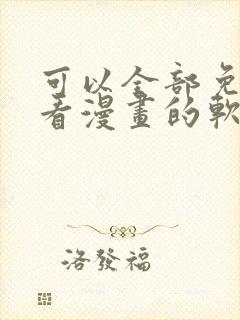 可以全部免
看漫畫的軟
洛發福